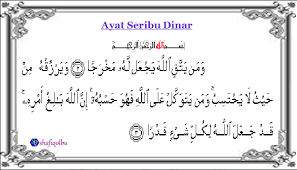 Ayat Seribu Dinar
بِسْمِ ٱللَّهِ ٱلرَّحْمَٰنِ ٱلرَّحِيمِ
وَمَن يَتَّقِ ٱللَّهَ يَجْعَل لَّهُۥ مَخْرَجًا ۝٢ وَيَرْزُقْهُ مِنْ
حَيْثُ لَا يَحْتَسِبُ ۚ وَمَن يَتَوَكَّلْ عَلَى ٱللَّهِ فَهُوَ حَسْبُهُۥٓ ۚ إِنَّ ٱللَّهَ بَٰلِغُ أَمْرِهِۦ ۚ
قَدْ جَعَلَ ٱللَّهُ لِكُلِّ شَىْءٍ قَدْرًا ۝٣
shafiqolbu